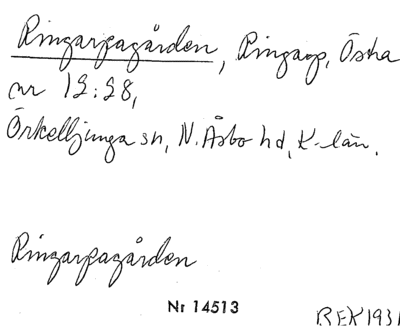 Ringarpagården, Ringarp, Östra
nr 12:28,
Örkelljunga sn, N. Åsbo hd, K-län.
Ringarpagården
Nr 14513
REK1931